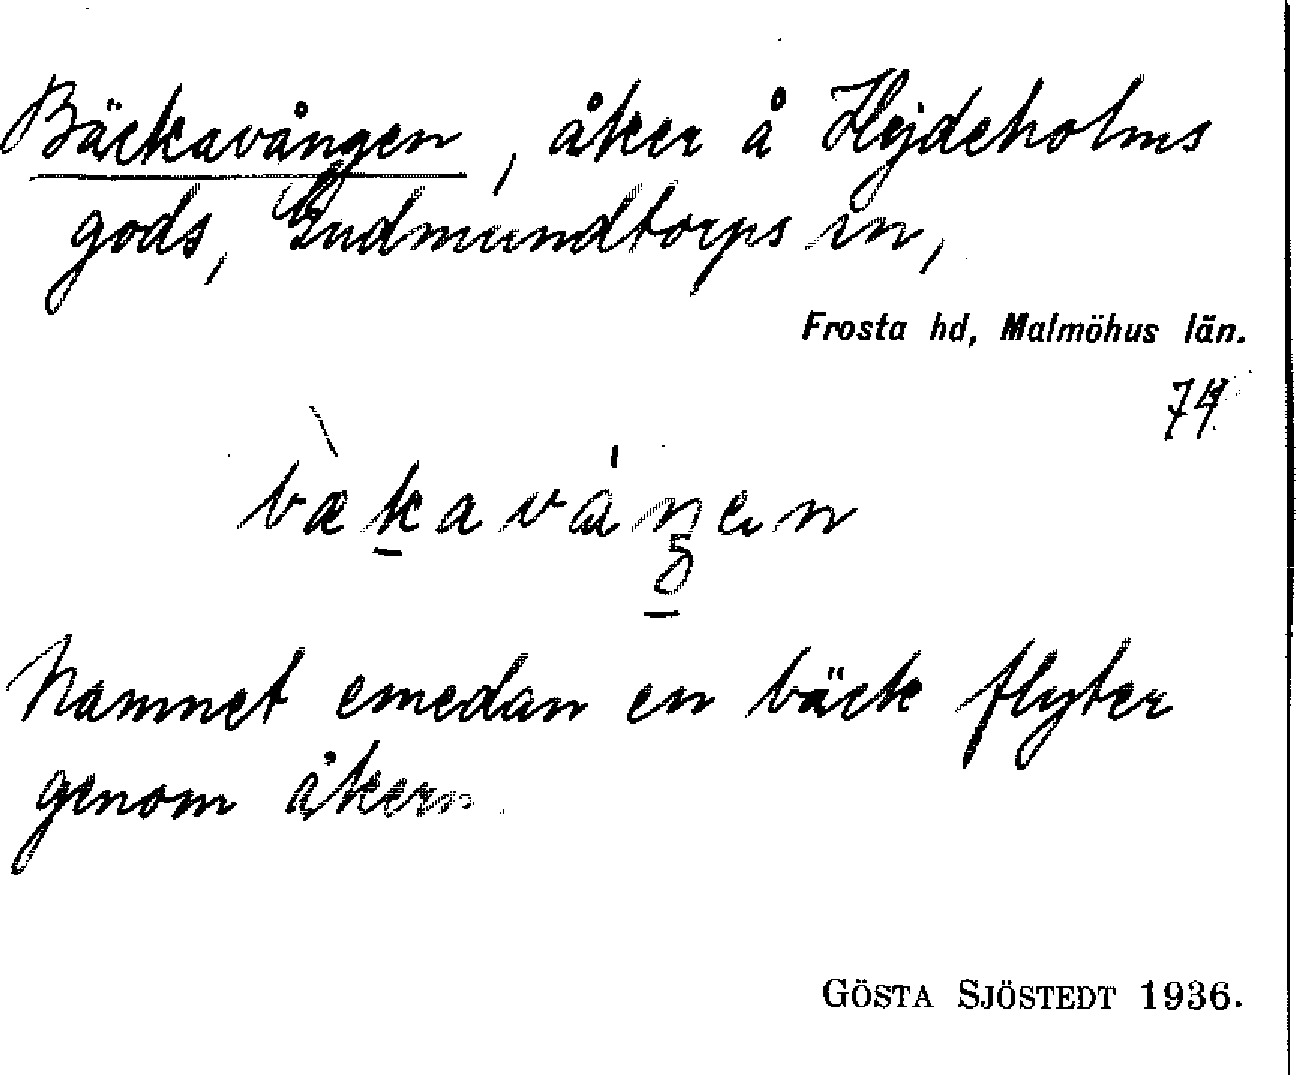 Bäckavången, åker å Hejdeholms
gods, Gudmundtorps sn,
Frosta hd, Malmöhus län.
74
bækavåŋen
Namnet emedan en bäck flyter
genom åkern.
GÖSTA SJÖSTEDT 1936.